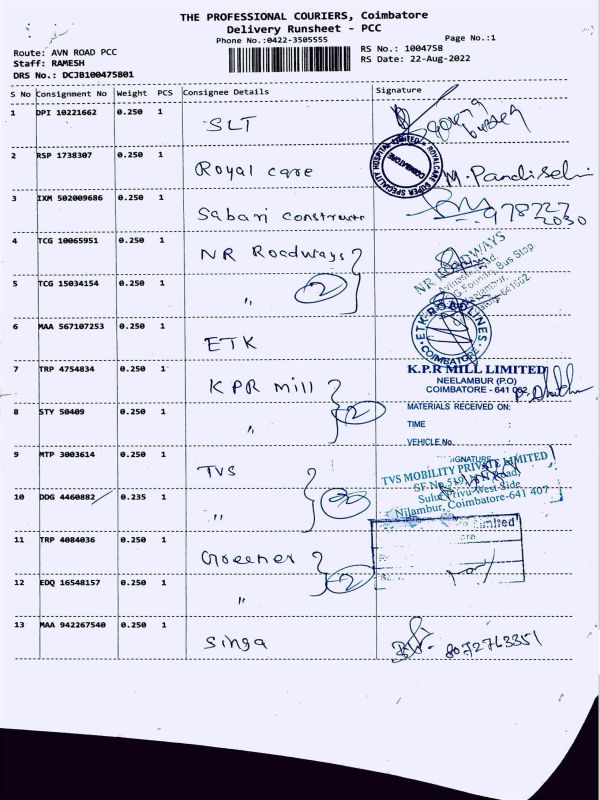 THE PROFESSIONAL COURIERS, Coimbatore
Delivery Runsheet - PCC
Phone No.:0422-3505555 Page No.:1
Route: AVN ROAD PCC RS No.: 1004758
Staff: RAMESH RS Date: 22-Aug-2022
DRS No.: DCJB100475801
S No Consignment No Weight PCS Consignee Details Signature
1 DPI 10221662 0.250 1 SLT
2 RSP 1738307 0.250 1 Royal care M. Pandiselvi
ROYALCARE SUPER SPECIALITY HOSPITAL LIMITED COIMBATORE
3 IXM 502009686 0.250 1 Sabari 978727 2030
4 TCG 10065951 0.250 1 NR Roadways
NR ROADWAYS
Foundry, Bus Stop
5 TCG 15034154 0.250 1 " 2
6 MAA 567107253 0.250 1 ETK
ETK ROADLINES COIMBATORE
7 TRP 4754834 0.250 1 KPR Mill
K.P.R MILL LIMITED
NEELAMBUR (P.O)
COIMBATORE - 641 062
8 STY 50409 0.250 1 " 2
MATERIALS RECEIVED ON:
TIME :
VEHICLE No.
SIGNATURE
9 MTP 3003614 0.250 1 TVS
TVS MOBILITY PRIVATE LIMITED
10 DDG 4460882 0.235 1 "
Nilambur, Coimbatore-641 407
11 TRP 4084036 0.250 1 Greener
Limited
12 EDQ 16548157 0.250 1 " 2
13 MAA 942267540 0.250 1 Singa 8072763351